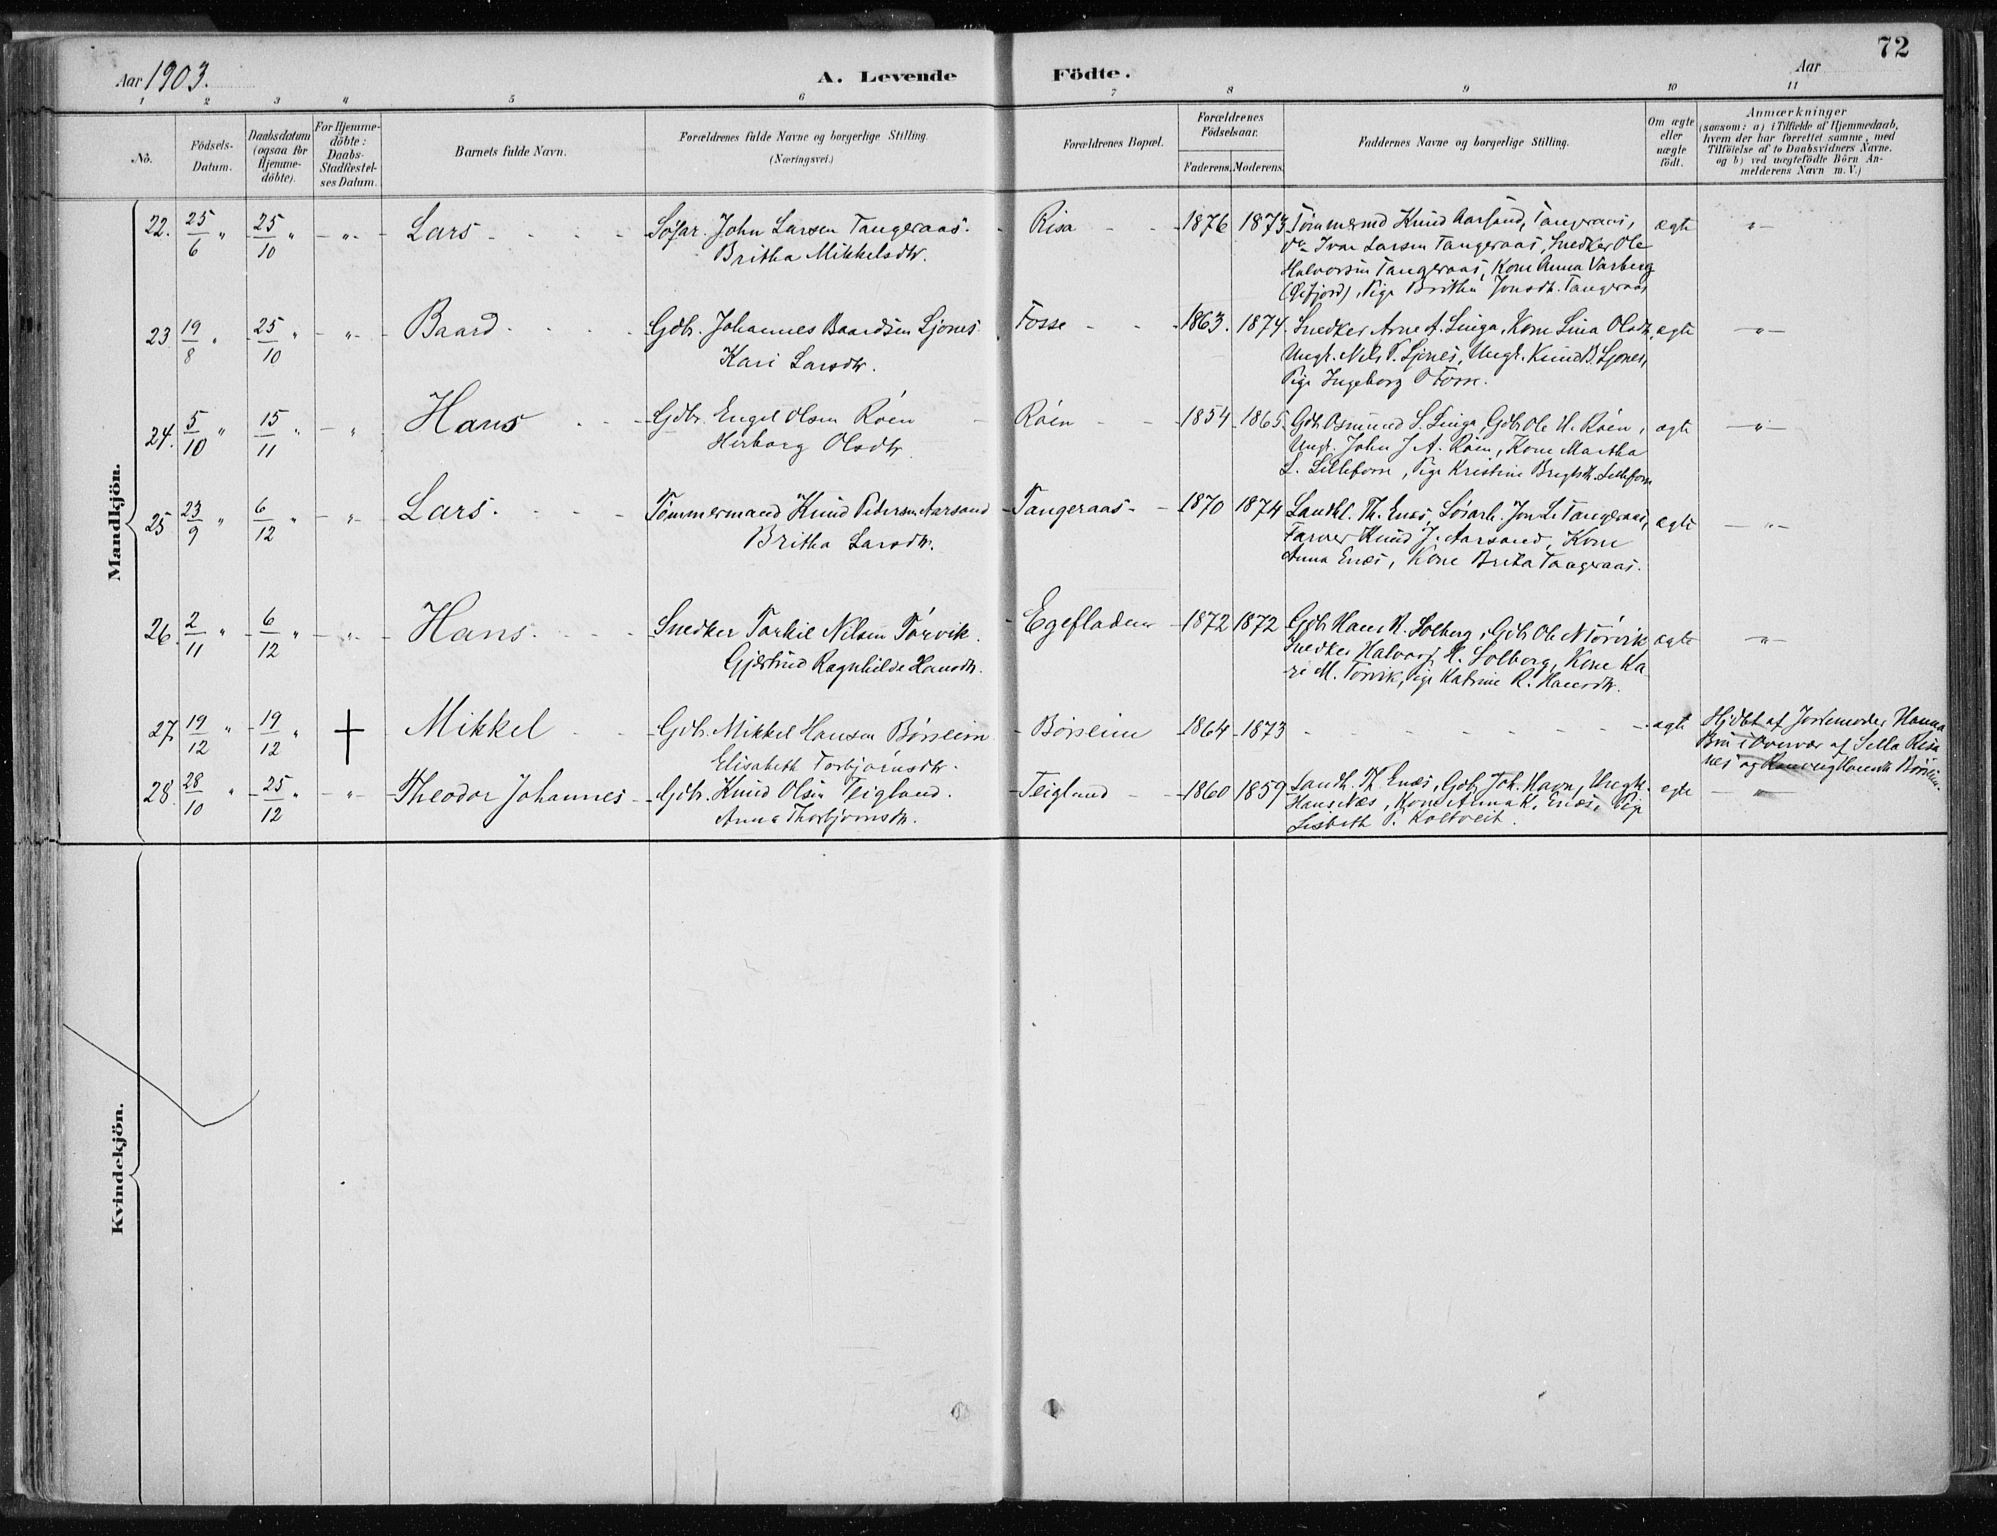 72
Aar 1903.
A. Levende Födte.
Aar
1 2 3 4 5 6 7 8 9 10 11
No.
Födsels-Datum.
Daabsdatum (ogsaa for Hjemme-döbte).
For Hjemme-döbte: Daabs-Stadfæstel-ses Datum.
Barnets fulde Navn.
Forældrenes fulde Navne og borgerlige Stilling.
(Næringsvei.)
Forældrenes Bopæl.
Forældrenes Födselsaar.
Faderens. Moderens.
Faddernes Navne og borgerlige Stilling.
Om ægte eller uægte födt.
Anmærkninger
(saasom: a) i Tilfælde af Hjemmedaab,
hvem der har forrettet samme, med
Tilföielse af to Daabsvidners Navne,
og b) ved uægtefödte Börn An-
melderens Navn m. V.)
Mandkjön.
22. 25/6 " 25/10 " - " - Lars - - - Johan Larsen Tangeraas. - Risa - - 1876 1873 Tømmermd Knud Aarsand, Tangeraas, ægte "
Britha Mikkelsdtr.
do Ivar Larsen Tangeraas, Snedker Ole
Halvorsen Tangeraas, Kone Anna Varberg
Pige Britha Jonsdt. Tangeraas
23 19/8 " 25/10 " - " - Baard - - - Gdbr. Johannes Baardsen Ljones Fosse - - 1863. 1874. Snedker Arne A. Linga, Kone Lina Olsdtr, ægte - " -
Kari Larsdtr.
Ungk. Nils T. Ljones, Ungk. Knud B. Ljones,
Pige Ingeborg O Fosse.
24. 5/10 " 15/11 " - " Hans - - Gdbr. Engel Olsen Röen - Röen - - 1854 - 1865. Gdbr Osmund S. Linga, Gdbr Ole H. Röen, ægte - " -
Herborg Olsdtr
Ungk. John J A. Röen, Kone Martha
L. Lillefosse, Pige Kristine Lillefosse
25 23/9 " 6/12 " - " - Lars. - - - Tømmermand Knud Pedersen Aarsand - Tangeraas - - 1870 1874 Th. Enæs, Jon L. Tangeraas, ægte - " -
Britha Larsdtr.
Farver Knud J. Aarsand, Kone
Anna Enæs, Kone Brita Tangeraas.
26. 2/11 " 6/12 " - " - Hans. - - - Snedker Torkil Nilsen Törvik. - Egefladen - 1872 1872 Gdbr Hans H. Solberg, Gdbr Ole N Törvik, ægte - " -
Gjertrud Ragnhilde Hansdtr.
Snedker Halvor H. Solberg, Kone Ka
ri M. Törvik, Pige Katrine R. Hansdtr.
27. 19/12 " 19/12 " + Mikkel - - Gdbr. Mikkel Hansen Börsheim - Börsheim 1864 - 1873 - - - - - - ægte Hjdøbt af Jordemoder Hanna
Elisabeth Torbjörnsdtr.
Bru i Overvær af Sella Risa
nes og Hansdtr Börsheim
28. 28/10 " 25/12 " - " - Theodor Johannes - Gdbr. Knud Olsen Teigland. - Teigland - - 1860 1859 Landh. Th. Enæs, Gdbr Joh. Havn, Ungk. ægte - " -
Anna Thorbjörnsdtr.
Hans Næs, Kone Anna K. Enæs, Pige
Lisbeth P. Koltveit.
Kvindekjön.